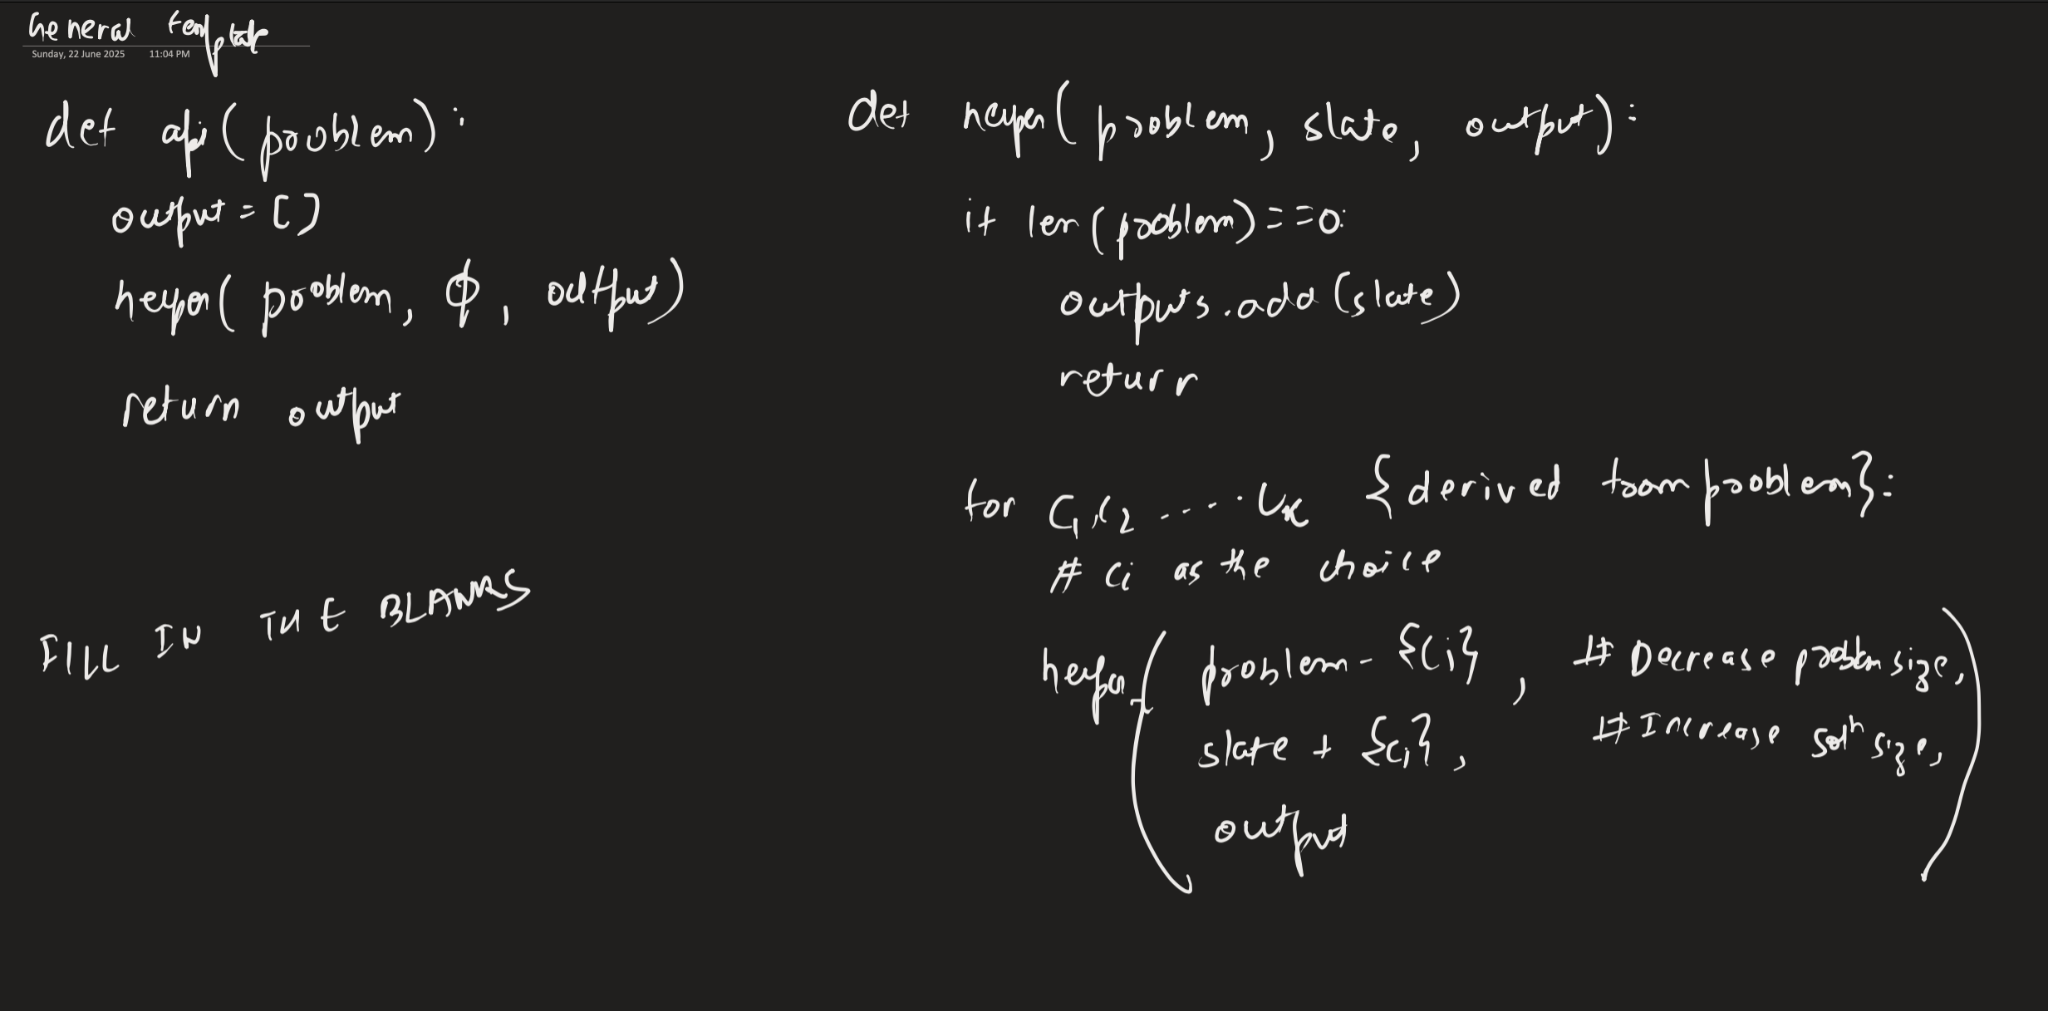 General template
Sunday, 22 June 2025 11:04 PM
def api(problem):
output = []
helper(problem, ϕ, output)
return output
FILL IN THE BLANKS
def helper(problem, slate, output):
if len(problem)==0:
outputs.add(slate)
return
for C1, C2 ..... Ck {derived from problem}:
# Ci as the choice
helper(problem - {Ci}, # Decrease problem size,
slate + {Ci}, # Increase solⁿ size,
output)